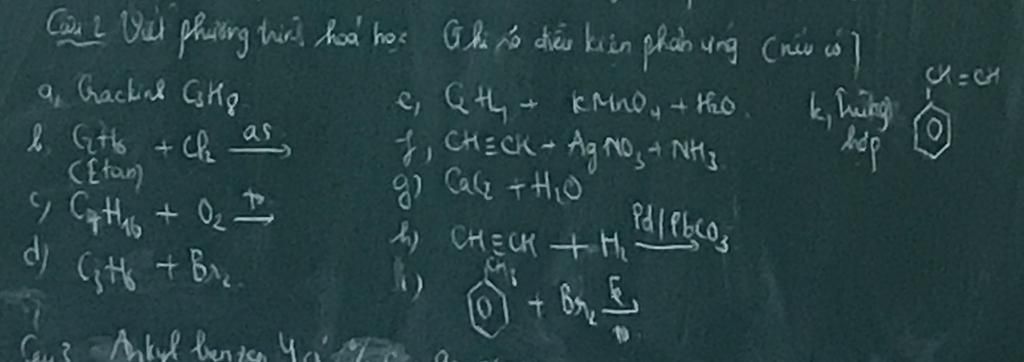 Câu 2 Viết phương trình hoá học Ghi rõ điều kiện phản ứng (nếu có)
a, Crackinh C3H8
b. C2H6 + Cl2 as →
(Etan)
c, C7H16 + O2 t° →
d) C3H6 + Br2
e, C2H4 + KMnO4 + H2O.
f, CH≡CH + AgNO3 + NH3
g) CaC2 + H2O
h) CH≡CH + H2 Pd/PbCO3 →
i) CH3 + Br2 Fe → t°
k, Trùng hợp CH=CH
Câu 3 Ankyl benzen Y có %